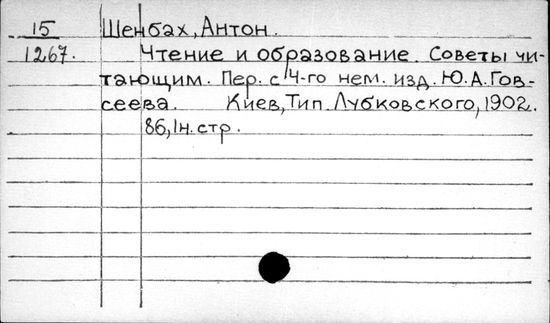 15 Шенбах, Антон.
1267. Чтение и образование. Советы чи-
тающим. Пер. с 4-го нем. изд. Ю.А.Гов-
сеева. Киев, Тип. Лубковского, 1902.
86, 1н. стр.